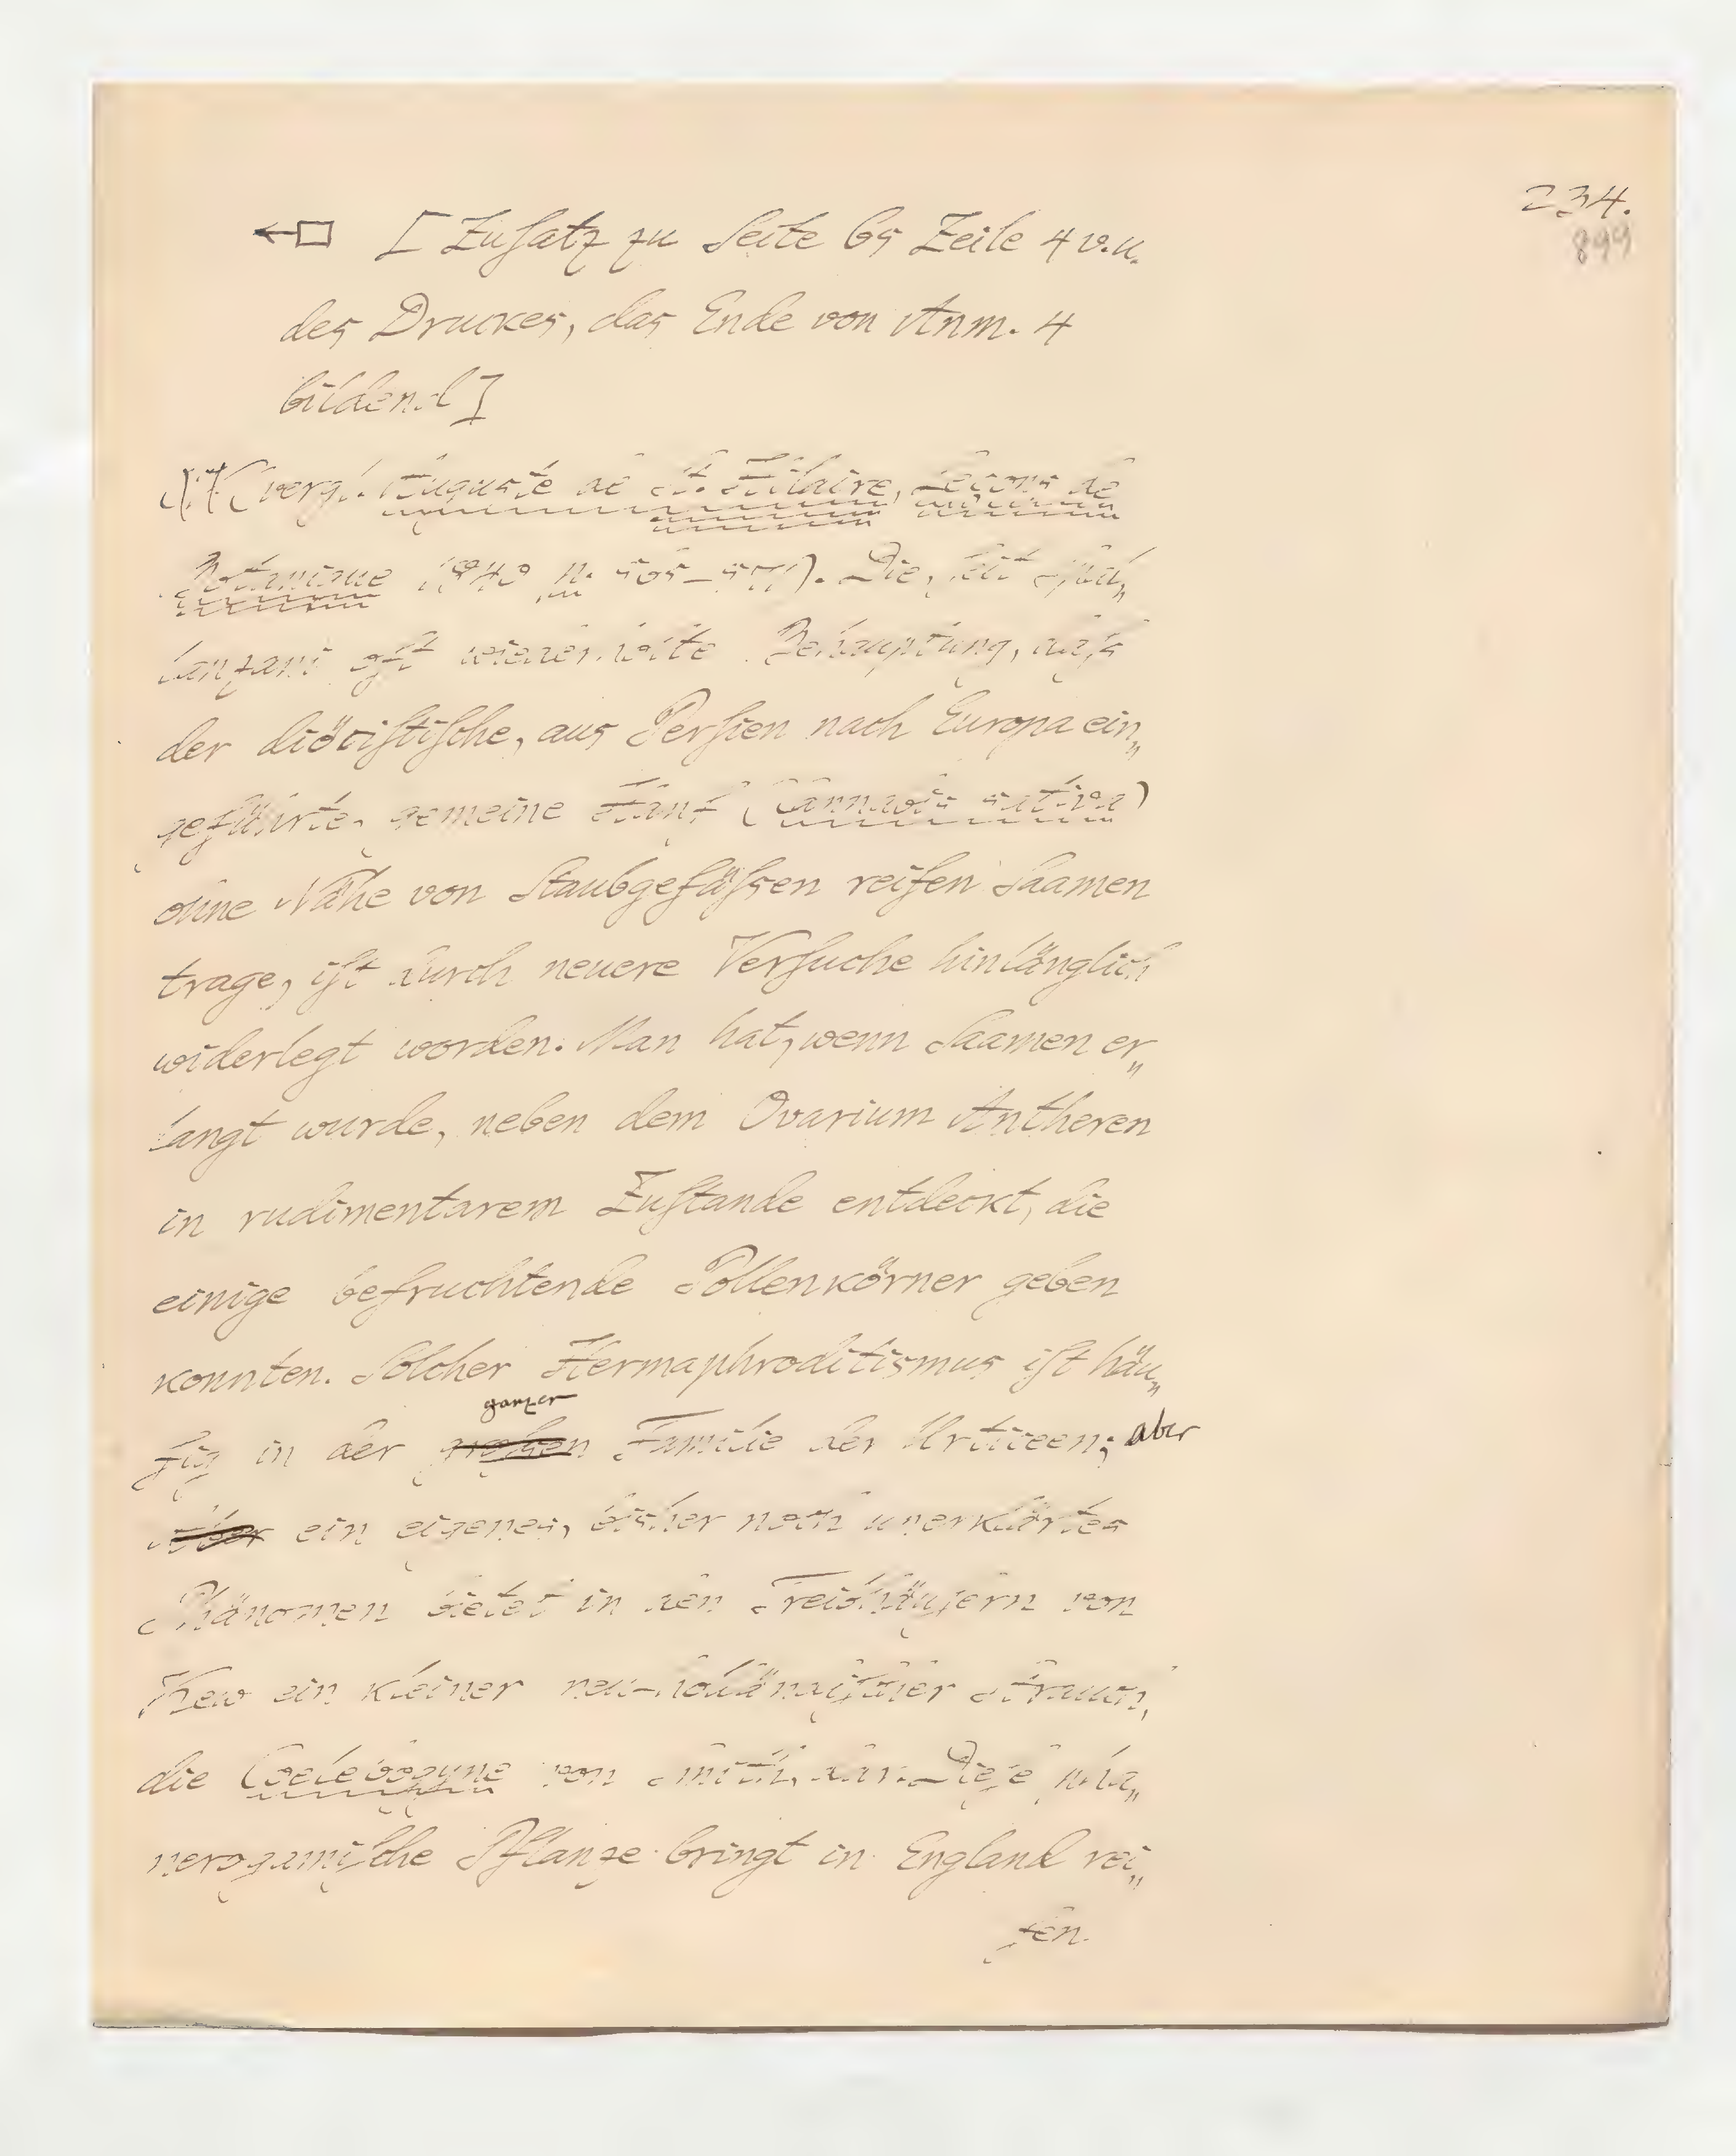 234.
899
[Zusatz zu Seite 65 Zeile 4 v. u.
des Druckes, das Ende von Anm. 4
bildend]
(vergl. Auguste de St. Hilaire, Leçons de
Botanique 1840 p. 565–571). Die, seit Spal„
lanzani oft wiederholte Behauptung, daß
der diöcistische, aus Persien nach Europa ein„
geführte, gemeine Hanf (Cannabis sativa)
ohne Nähe von Staubgefäßen reifen Saamen
trage, ist durch neuere Versuche hinlänglich
widerlegt worden. Man hat, wenn Saamen er„
langt wurde, neben dem Ovarium Antheren
in rudimentarem Zustande entdeckt, die
einige befruchtende Pollenkörner geben
konnten. Solcher Hermaphroditismus ist häu„
ganzer
fig in der großen Familie der Urticeen; aber
Aber ein eigenes, bisher noch unerklärtes
Phänomen bietet in den Treibhäusern von
Kew ein kleiner neu-holländischer Strauch,
die Coelebogyne von Smith, dar. Diese pha„
nerogamische Pflanze bringt in England rei„
fen.